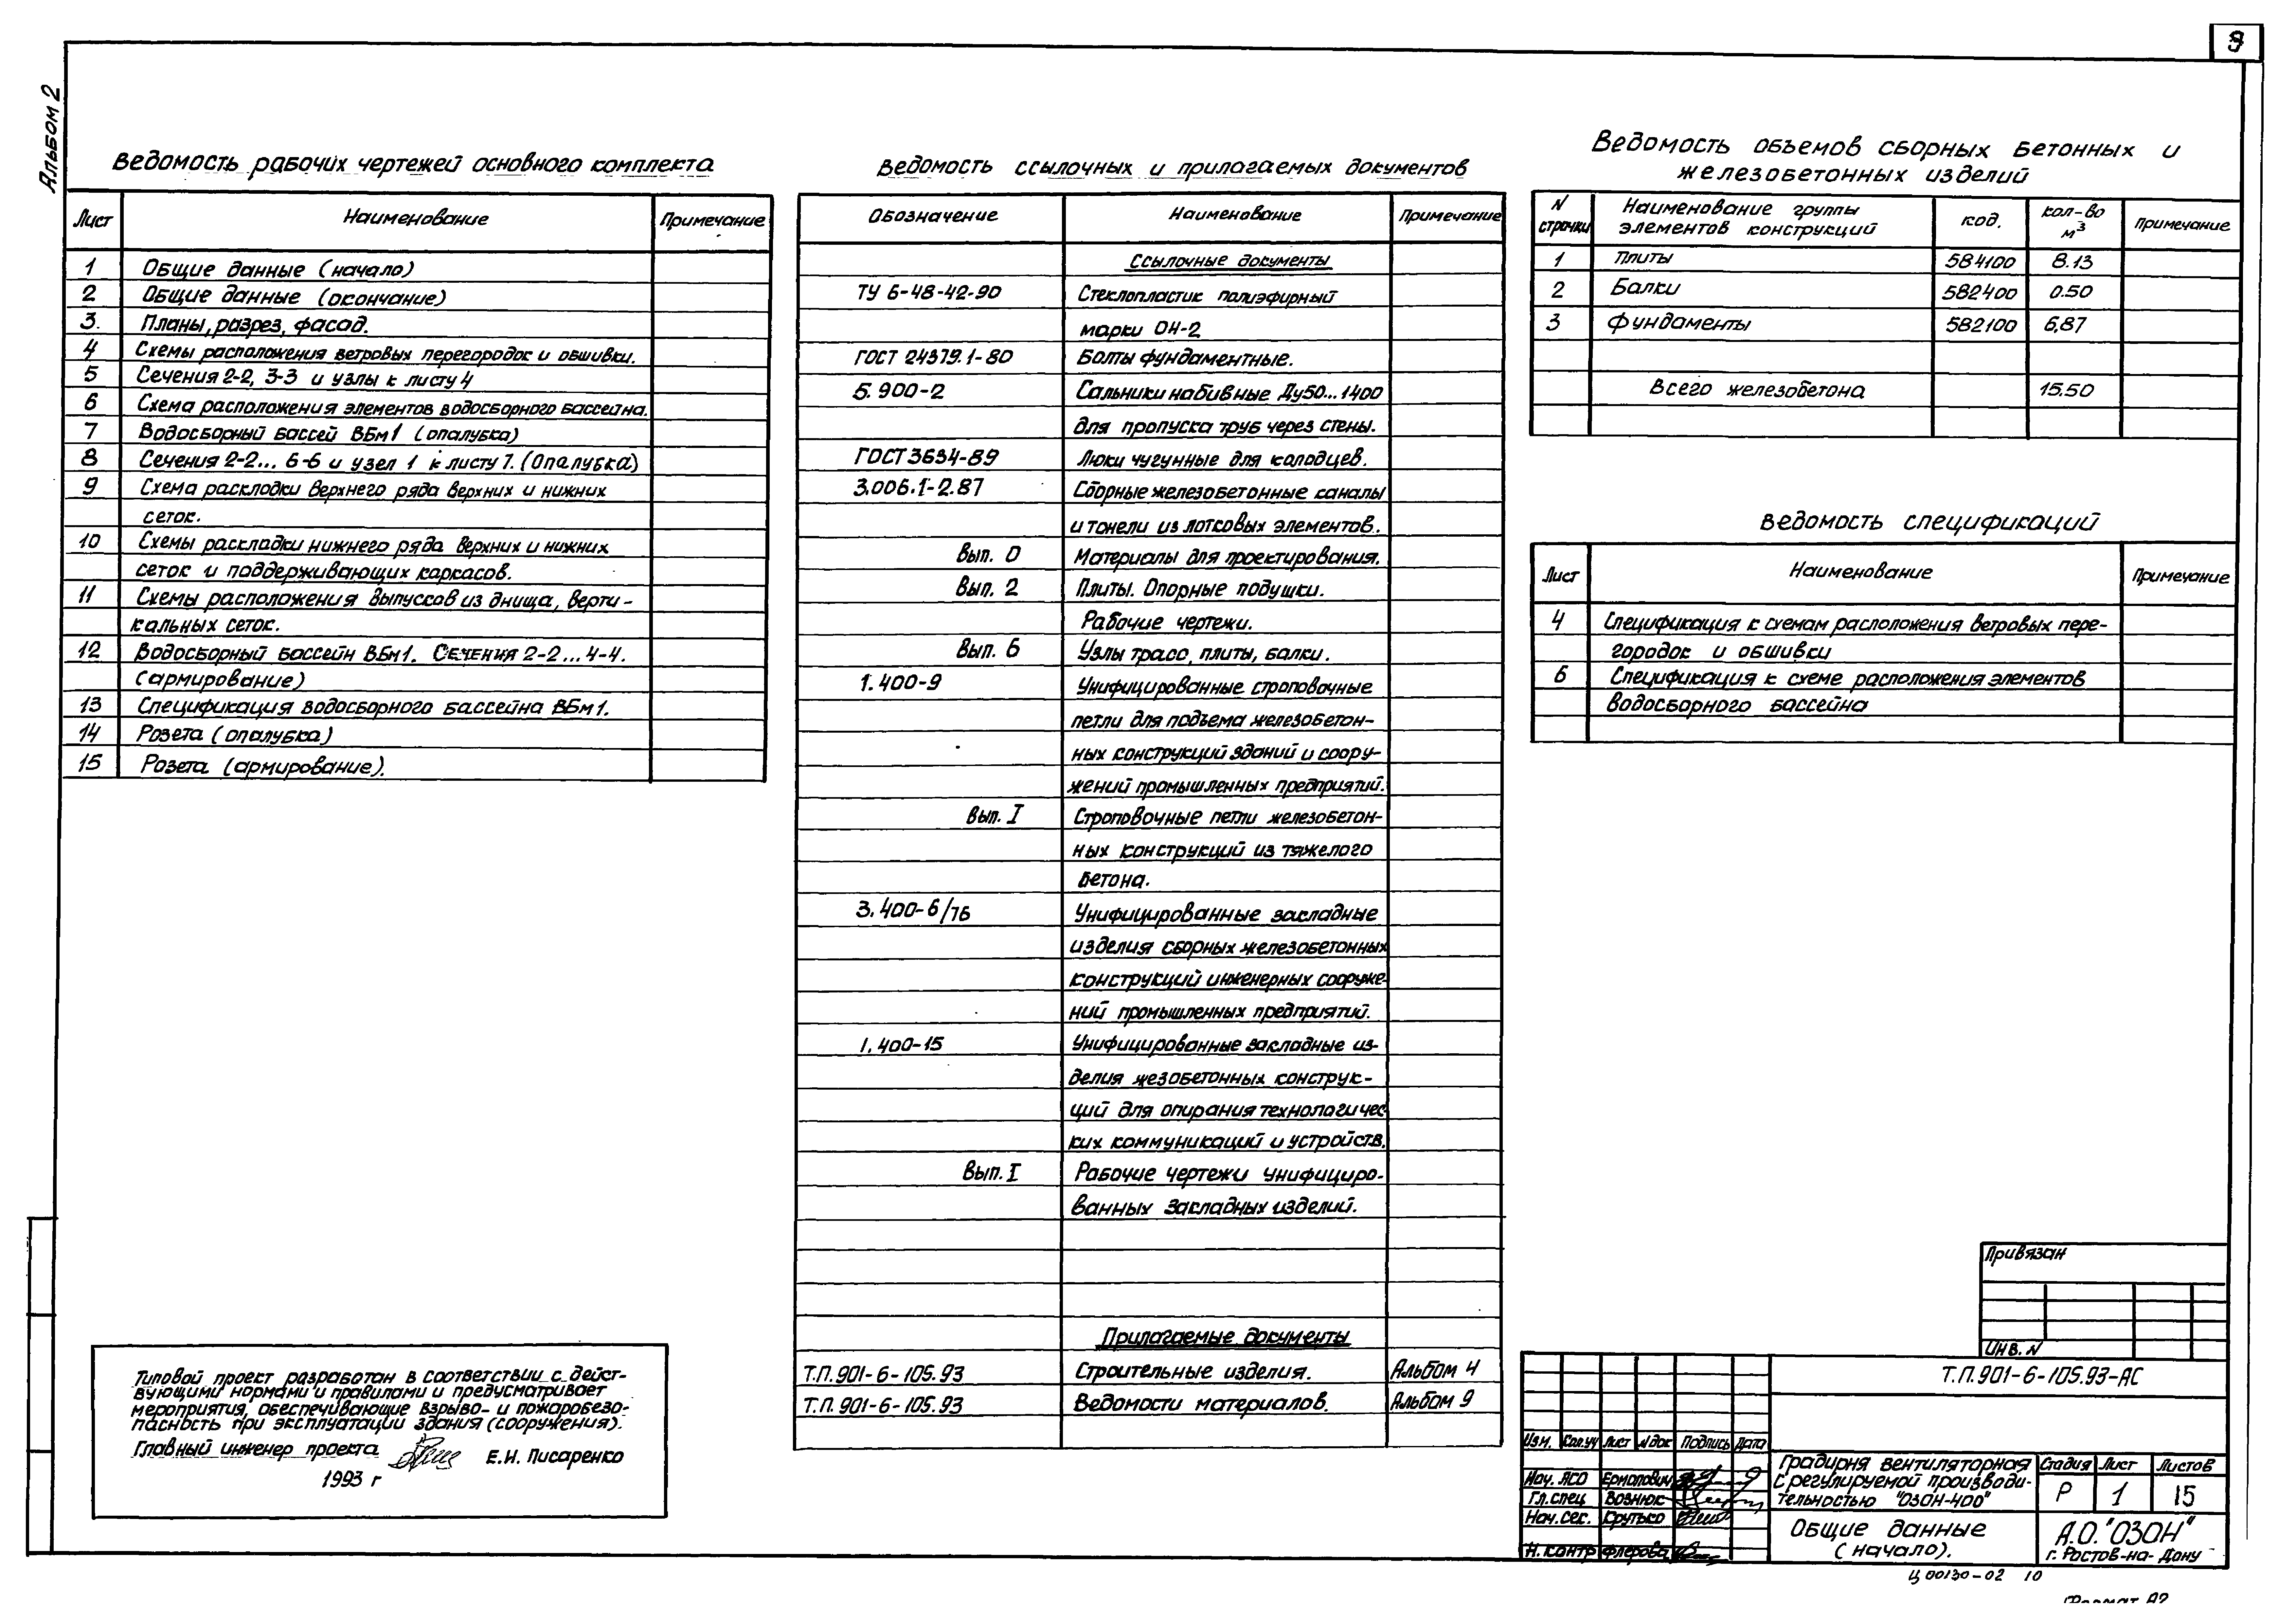 Альбом 2
Ведомость рабочих чертежей основного комплекта
Лист Наименование Примечание
1 Общие данные (начало)
2 Общие данные (окончание)
3. Планы, разрез, фасад.
4 Схемы расположения ветровых перегородок и обшивки.
5 Сечения 2-2, 3-3 и узлы к листу 4
6 Схема расположения элементов водосборного бассейна.
7 Водосборный бассей ВБм1 (опалубка)
8 Сечения 2-2... 6-6 и узел 1 к листу 7. (Опалубка)
9 Схема раскладки верхнего ряда верхних и нижних
сеток.
10 Схемы раскладки нижнего ряда верхних и нижних
сеток и поддерживающих каркасов.
11 Схемы расположения выпусков из днища, верти-
кальных сеток.
12 Водосборный бассейн ВБм1. Сечения 2-2... 4-4.
(армирование)
13 Спецификация водосборного бассейна ВБм1.
14 Розета (опалубка)
15 Розета (армирование).
Типовой проект разработан в соответствии с дейст-
вующими нормами и правилами и предусматривает
мероприятия, обеспечивающие взрыво- и пожаробезо-
пасность при эксплуатации здания (сооружения).
Главный инженер проекта Е.Н. Писаренко
1993 г
Ведомость ссылочных и прилагаемых документов
Обозначение Наименование Примечание
Ссылочные документы
ТУ 6-48-42-90 Стеклопластик полиэфирный
марки ОН-2
ГОСТ 24379.1-80 Болты фундаментные.
5.900-2 Сальники набивные Ду50...1400
для пропуска труб через стены.
ГОСТ 3634-89 Люки чугунные для колодцев.
3.006.1-2.87 Сборные железобетонные каналы
и тонели из лотковых элементов.
Вып. 0 Материалы для проектирования.
Вып. 2 Плиты. Опорные подушки.
Рабочие чертежи.
Вып. 6 Узлы трасс, плиты, балки.
1.400-9 Унифицированные строповочные
петли для подъема железобетон-
ных конструкций зданий и соору-
жений промышленных предприятий.
Вып. I Строповочные петли железобетон-
ных конструкций из тяжелого
бетона.
3.400-6/76 Унифицированные закладные
изделия сборных железобетонных
конструкций инженерных сооруже-
ний промышленных предприятий.
1.400-15 Унифицированные закладные из-
делия жезобетонных конструк-
ций для опирания технологичес
ких коммуникаций и устройств.
Вып. I Рабочие чертежи унифициро-
ванных закладных изделий.
Прилагаемые документы
Т.П. 901-6-105.93 Строительные изделия. Альбом 4
Т.П. 901-6-105.93 Ведомости материалов. Альбом 9
Ведомость объемов сборных бетонных и
железобетонных изделий
N строчки Наименование группы элементов конструкций код. кол-во м³ Примечание
1 Плиты 584100 8.13
2 Балки 582400 0.50
3 Фундаменты 582100 6,87
Всего железобетона 15.50
Ведомость спецификаций
Лист Наименование Примечание
4 Спецификация к схемам расположения ветровых пере-
городок и обшивки
6 Спецификация к схеме расположения элементов
водосборного бассейна
Привязан
Инв. N
Т.П. 901-6-105.93-АС
Изм. Кол.уч Лист N док Подпись Дата
Нач. АСО Ермолович
Гл. спец Вознюк
Нач. сек. Крутько
Н. контр Флерова
Градирня вентиляторная
с регулируемой производи-
тельностью "ОЗОН-400"
Стадия Лист Листов
Р 1 15
Общие данные
(начало).
А.О. "ОЗОН"
г. Ростов-на-Дону
Ц 00130-02 10
Формат А2